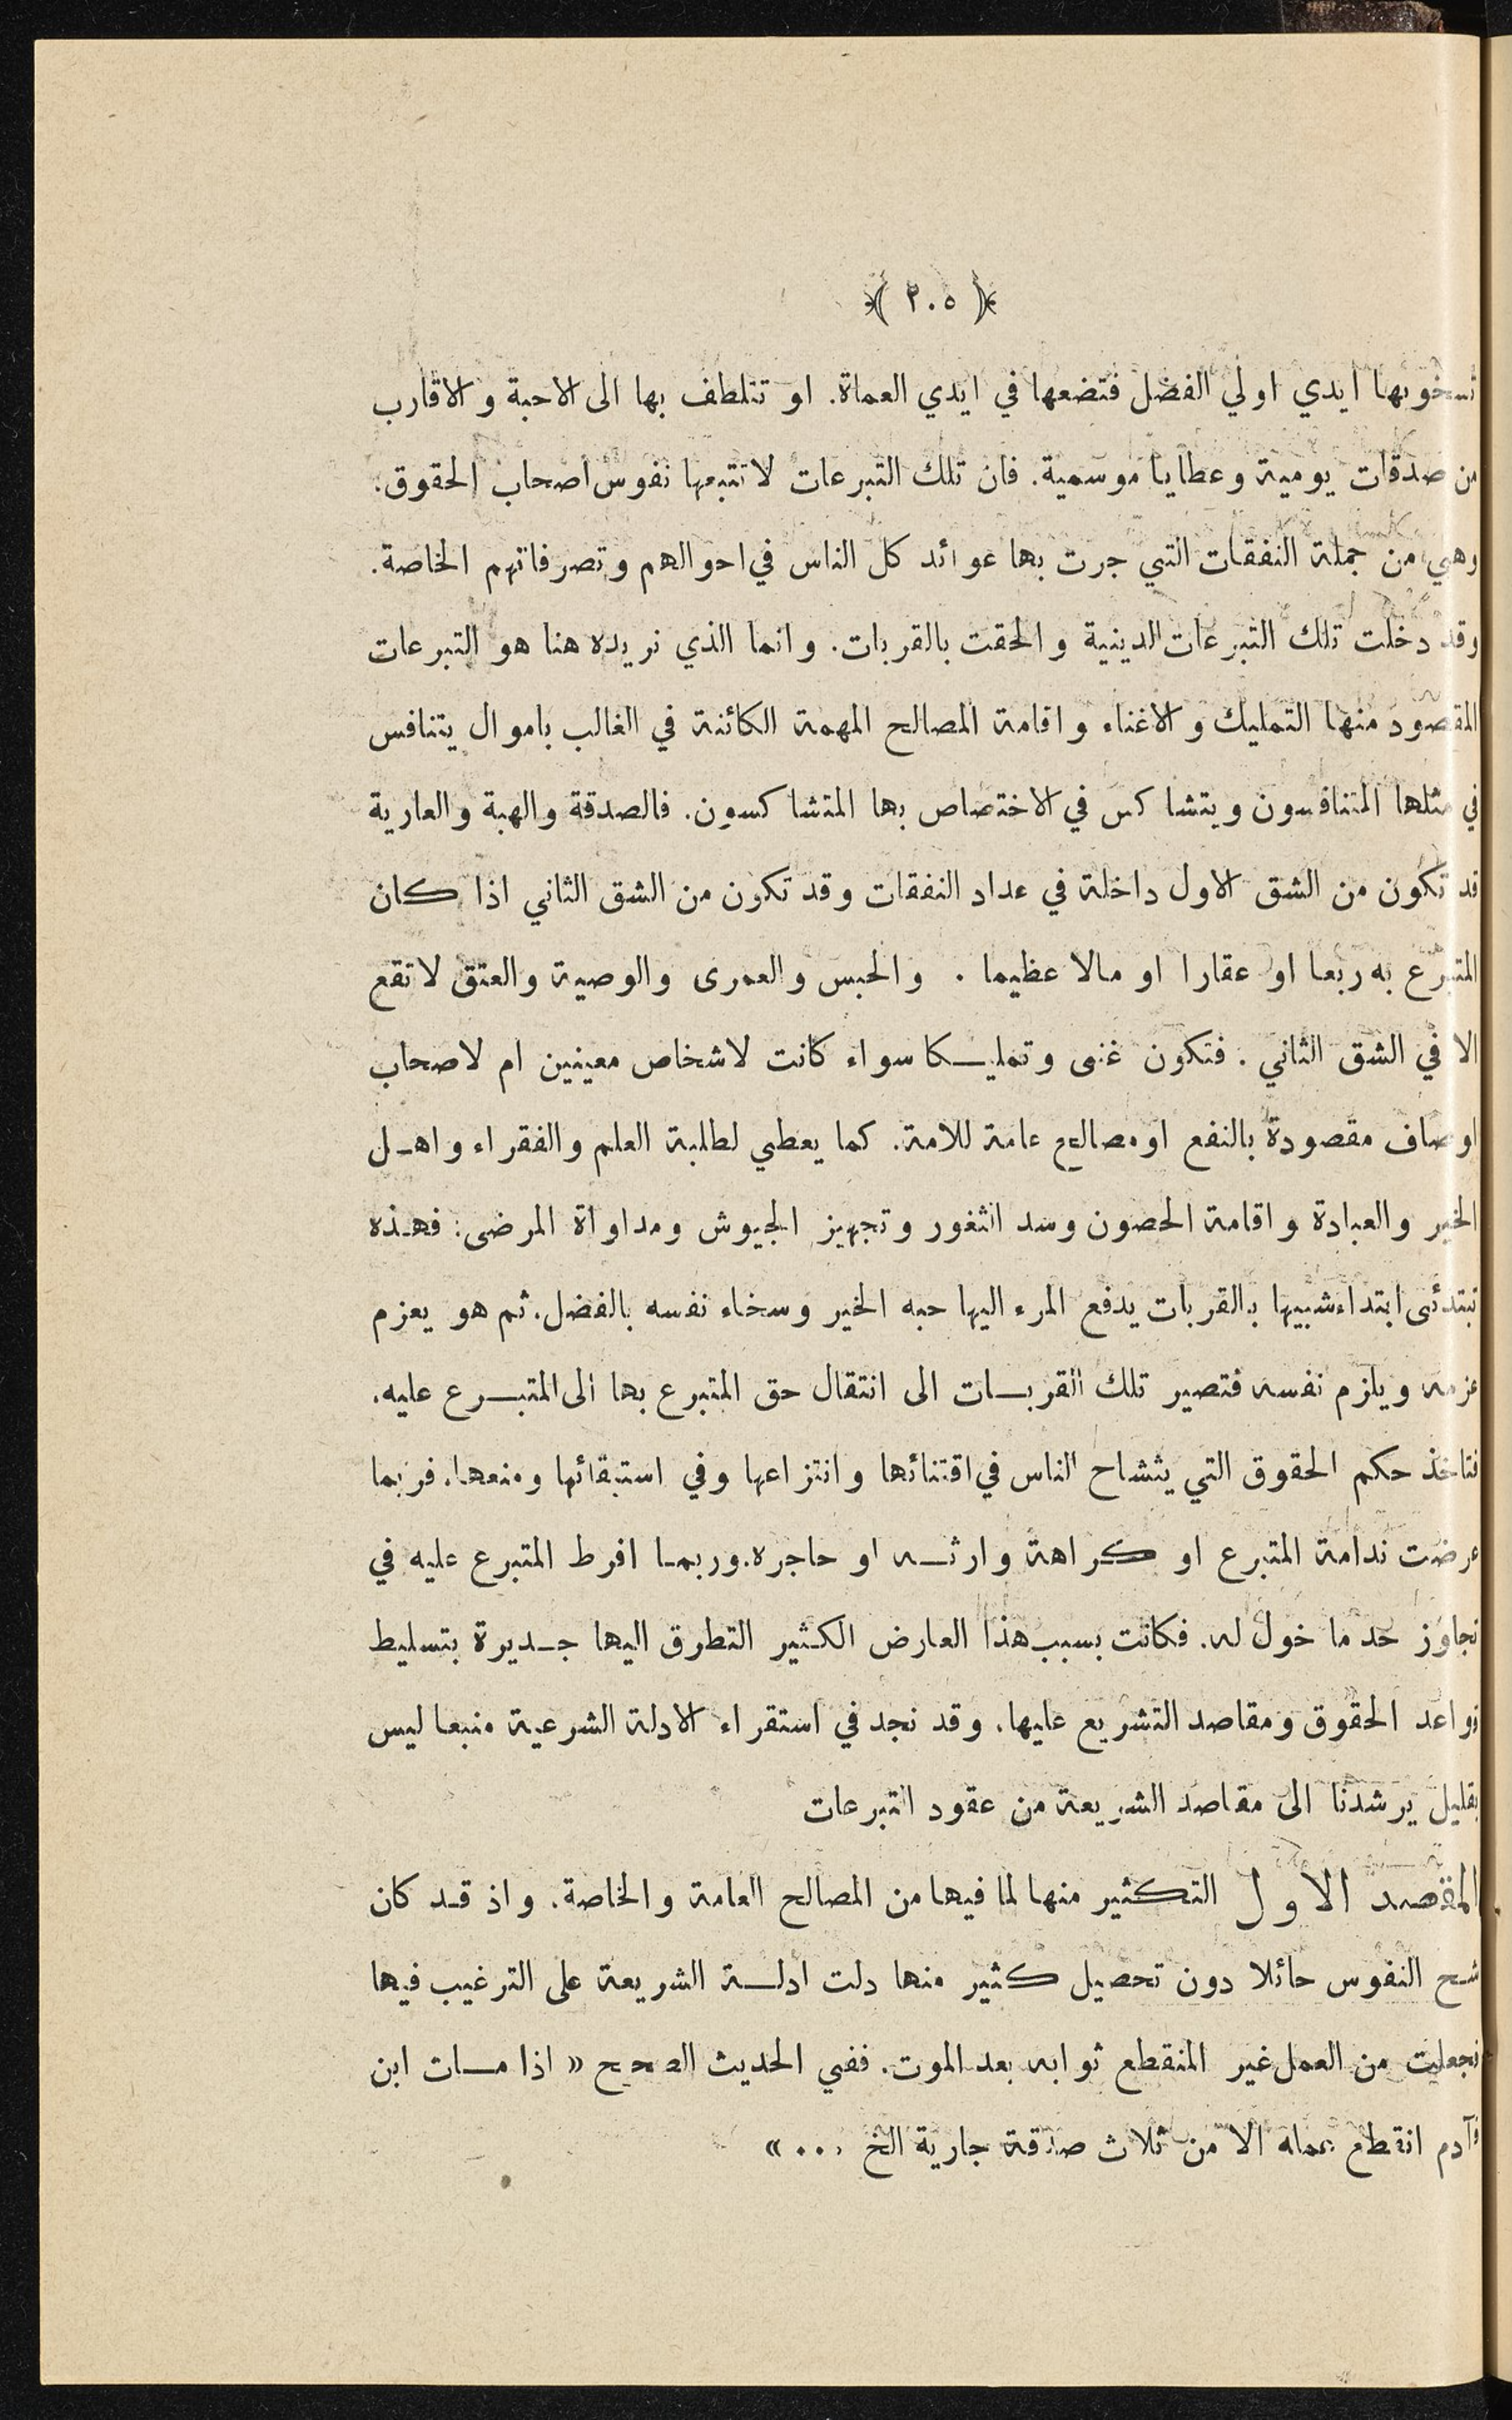 ﴿ ٢٠٥ ﴾
تسخو بها ايدي اولي الفضل فتضعها في ايدي العماة. او تتلطف بها الى الاحبة والاقارب
من صدقات يومية وعطايا موسمية. فان تلك التبرعات لا تتبعها نفوس اصحاب الحقوق.
وهي من جملة النفقات التي جرت بها عوائد كل الناس في احوالهم وتصرفاتهم الخاصة.
وقد دخلت تلك التبرعات الدينية والحقت بالقربات. وانما الذي نريده هنا هو التبرعات
المقصود منها التمليك والاغناء واقامة المصالح المهمة الكائنة في الغالب باموال يتنافس
في مثلها المتنافسون ويتشاكس في الاختصاص بها المتشاكسون. فالصدقة والهبة والعارية
قد تكون من الشق الاول داخلة في عداد النفقات وقد تكون من الشق الثاني اذا كان
المتبرع به ربعا او عقارا او مالا عظيما . والحبس والعمرى والوصية والعتق لا تقع
الا في الشق الثاني . فتكون غنى وتمليكا سواء كانت لاشخاص معينين ام لاصحاب
اوصاف مقصودة بالنفع او مصالح عامة للامة. كما يعطي لطلبة العلم والفقراء واهل
الخير والعبادة واقامة الحصون وسد الثغور وتجهيز الجيوش ومداواة المرضى: فهذه
تبتدئى ابتداء شبيها بالقربات يدفع المرء اليها حبه الخير وسخاء نفسه بالفضل. ثم هو يعزم
عزمه ويلزم نفسه فتصير تلك القربات الى انتقال حق المتبرع بها الى المتبرع عليه.
فتاخذ حكم الحقوق التي يتشاح الناس في اقتنائها وانتزاعها وفي استبقائها ومنعها. فربما
عرضت ندامة المتبرع او كراهة وارثه او حاجره. وربما افرط المتبرع عليه في
تجاوز حد ما خول له. فكانت بسبب هذا العارض الكثير التطرق اليها جديرة بتسليط
قواعد الحقوق ومقاصد التشريع عليها. وقد نجد في استقراء الادلة الشرعية منبعا ليس
بقليل يرشدنا الى مقاصد الشريعة من عقود التبرعات
المقصد الاول التكثير منها لما فيها من المصالح العامة والخاصة. واذ قد كان
شح النفوس حائلا دون تحصيل كثير منها دلت ادلة الشريعة على الترغيب فيها
فجعلت من العمل غير المنقطع ثوابه بعد الموت. ففي الحديث الصحيح « اذا مات ابن
آدم انقطع عمله الا من ثلاث صدقة جارية الخ ... »